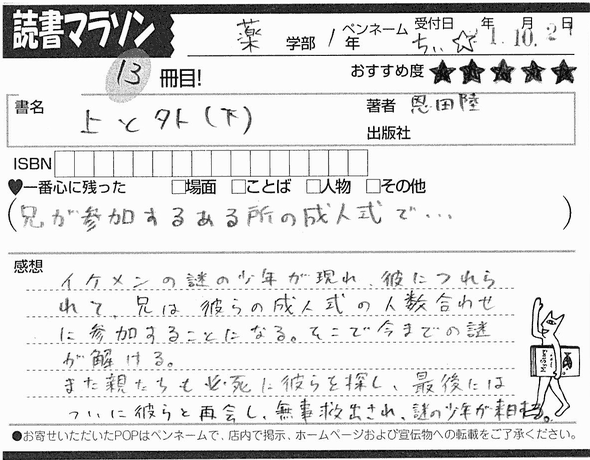 読書マラソン
薬 学部 / 1 年 ペンネーム ちぃ☆ 受付日 年 月 日 1.10.2
13 冊目! おすすめ度 ★★★★★
書名 上と外(下) 著者 恩田陸
出版社
ISBN
♥一番心に残った □場面 □ことば □人物 □その他
(兄が参加するある所の成人式で…)
感想
イケメンの謎の少年が現れ、彼につれら
れて、兄は彼らの成人式の人数合わせ
に参加することになる。そこで今までの謎
が解ける。
また親たちも必死に彼らを探し、最後には
ついに彼らと再会し、無事救出され、謎の少年が
Mystery
●お寄せいただいたPOPはペンネームで、店内で掲示、ホームページおよび宣伝物への転載をご了承ください。